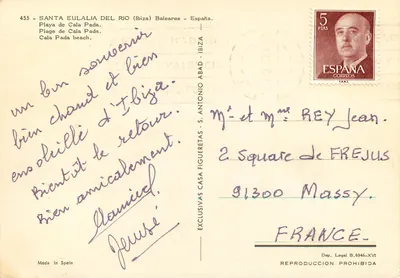 455 - SANTA EULALIA DEL RIO (Ibiza) Baleares - España.
Playa de Cala Pada.
Plage de Cala Pada.
Cala Pada beach.
un bon souvenir
bien chaud et bien
ensoleillé d'Ibiza.
Bientôt le retour.
Bien amicalement.
Made in Spain
EXCLUSIVAS CASA FIGUERETAS - S. ANTONIO ABAD - IBIZA
5
PTAS
ESPAÑA
CORREOS
Mr et Mme REY Jean.
2 Square de FREJUS
91300 Massy.
FRANCE.
Dep. Legal B.
REPRODUCCION PROHIBIDA